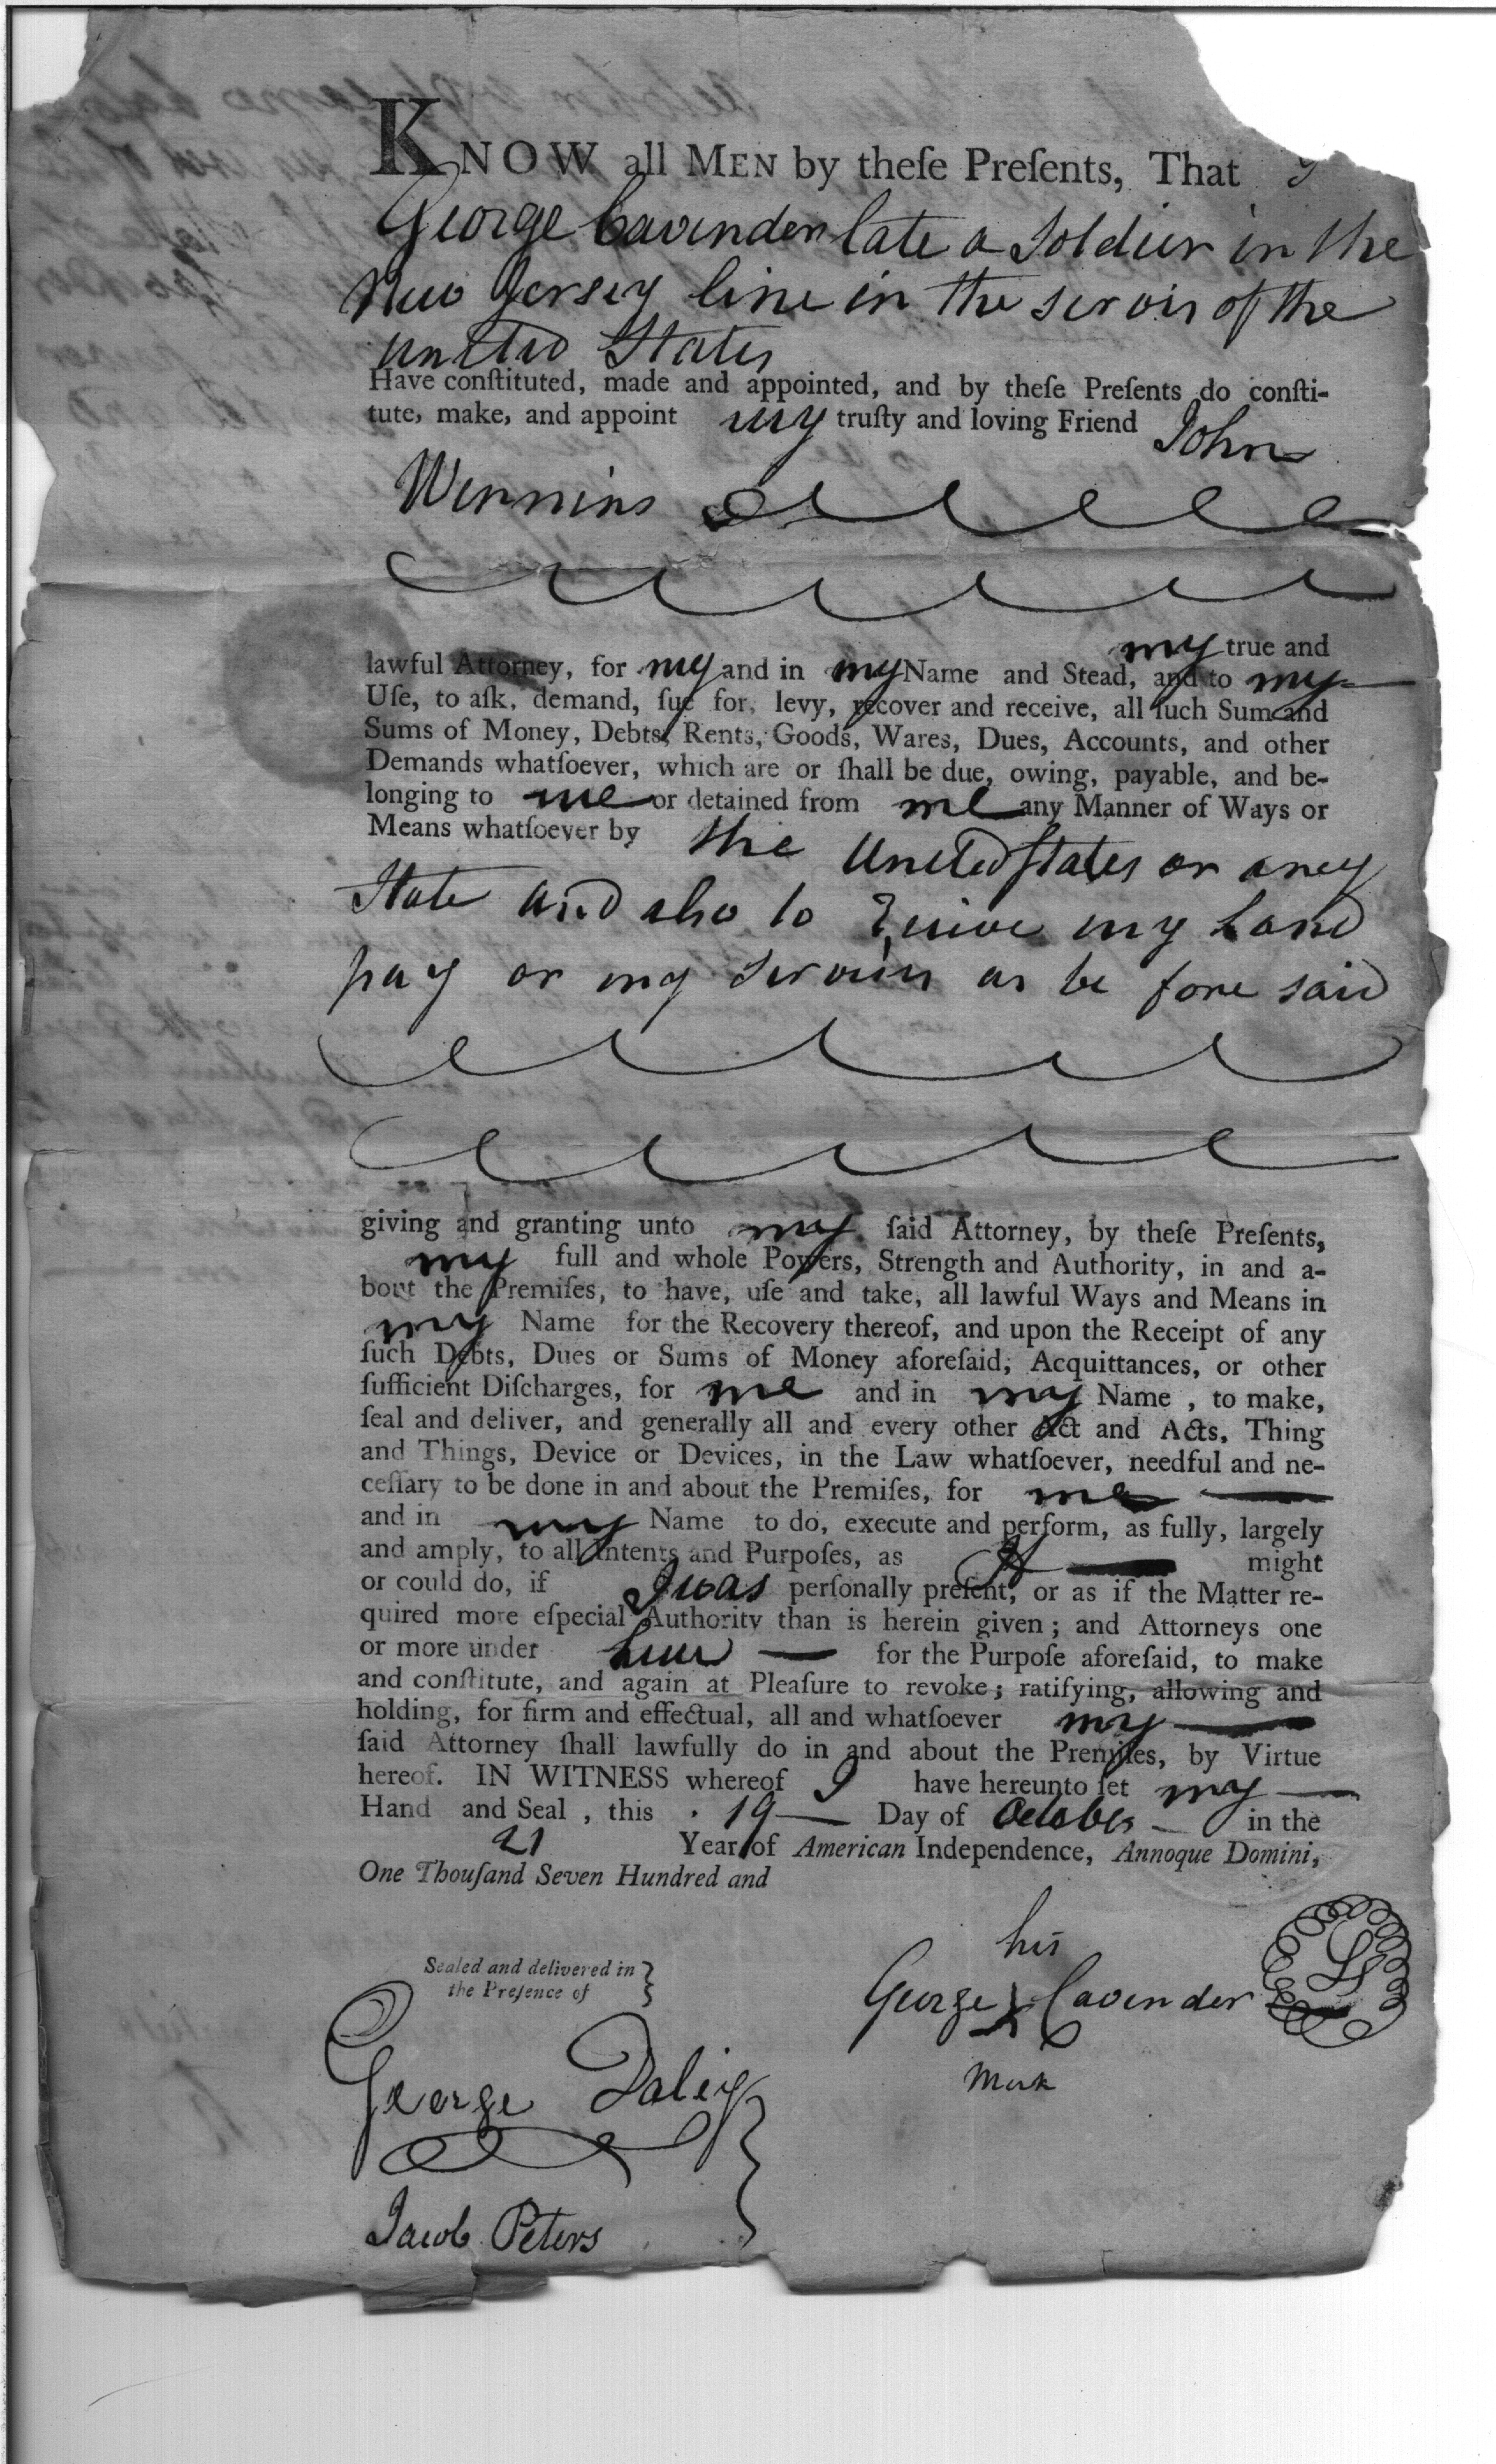 KNOW all MEN by theſe Preſents, That
George Cavender late a Soldier in the
New Jersey line in the servis of the
united States
Have conſtituted, made and appointed, and by theſe Preſents do conſti-
tute, make, and appoint my truſty and loving Friend John
Winnins
my true and
lawful Attorney, for my and in my Name and Stead, and to my
Uſe, to aſk, demand, ſue for, levy, recover and receive, all ſuch Sum and
Sums of Money, Debts, Rents, Goods, Wares, Dues, Accounts, and other
Demands whatſoever, which are or ſhall be due, owing, payable, and be-
longing to me or detained from me any Manner of Ways or
Means whatſoever by the United States or aney
State and also to my Land
pay or my as be fore said
giving and granting unto my ſaid Attorney, by theſe Preſents,
my full and whole Powers, Strength and Authority, in and a-
bout the Premiſes, to have, uſe and take, all lawful Ways and Means in
my Name for the Recovery thereof, and upon the Receipt of any
ſuch Debts, Dues or Sums of Money aforeſaid; Acquittances, or other
ſufficient Diſcharges, for me and in my Name , to make,
ſeal and deliver, and generally all and every other Act and Acts, Thing
and Things, Device or Devices, in the Law whatſoever, needful and ne-
ceſſary to be done in and about the Premiſes, for me
and in my Name to do, execute and perform, as fully, largely
and amply, to all Intents and Purpoſes, as I might
or could do, if I was perſonally preſent, or as if the Matter re-
quired more eſpecial Authority than is herein given; and Attorneys one
or more under for the Purpoſe aforeſaid, to make
and conſtitute, and again at Pleaſure to revoke; ratifying, allowing and
holding, for firm and effectual, all and whatſoever my
ſaid Attorney ſhall lawfully do in and about the Premiſes, by Virtue
hereof. IN WITNESS whereof I have hereunto ſet my
Hand and Seal , this 19 Day of October in the
21 Year of American Independence, Annoque Domini,
One Thouſand Seven Hundred and
his
George X Cavender LS
mark
Sealed and delivered in
the Preſence of
George Daliy
Jacob Peters